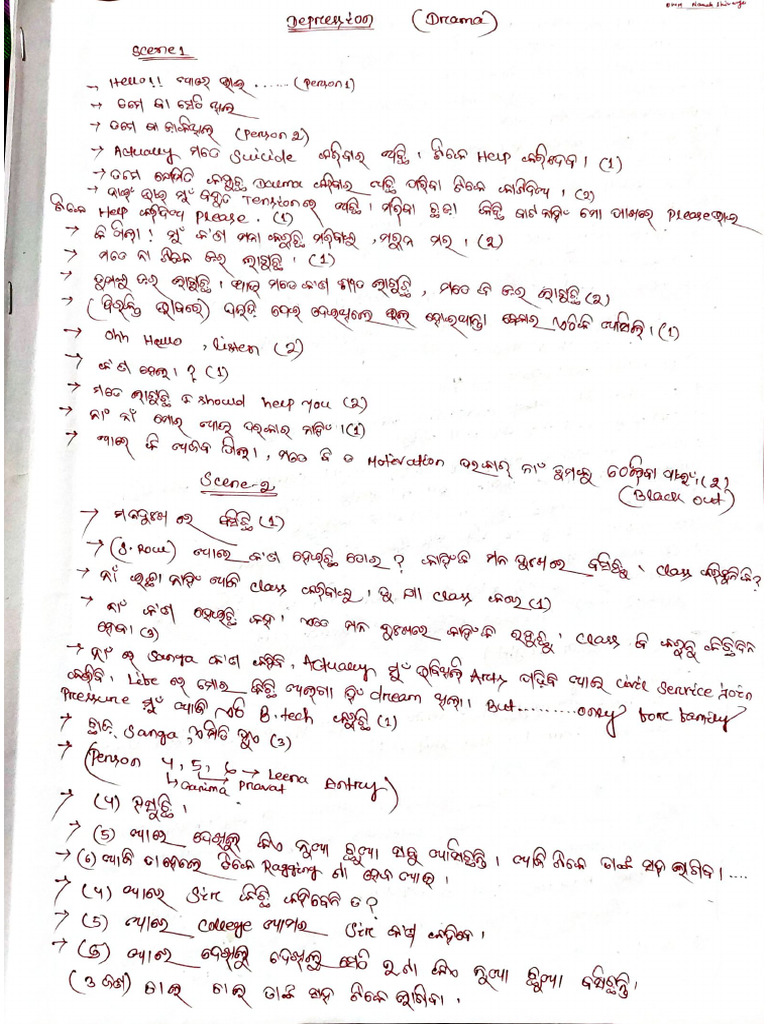 Depression (Drama)
Scene 1
→ Hello!! ଆରେ ଭାଇ ...... (Person 1)
→ ତମେ
→ ତମେ (Person 2)
→ Actually ମତେ Suicide କରିବାର ଅଛି । ଟିକେ Help କରିଦେବ । (1)
→ ତମେ ସେମିତି Drama କରିବାର ଅଛି ଟିକେ (2)
→ ଭାଇ ଭାଇ ମୁଁ ବହୁତ Tension ରେ ଅଛି । ମରିବା ଛଡ଼ା କିଛି ବାଟ ନାହିଁ ମୋ ପାଖରେ Please ଭାଇ
ଟିକେ Help କରିଦିଅ Please . (1)
→ କି ପିଲା ! ମୁଁ କ'ଣ ମନା କରୁଛି ମରିବାକୁ , ମରୁନ ମର । (2)
→ ମତେ ନା ଟିକେ ଡର ଲାଗୁଛି । (1)
→ ତୁମକୁ ଡର ଲାଗୁଛି । ଆଉ ମତେ କ'ଣ ଲାଗୁଛି , ମତେ ବି ଡର ଲାଗୁଛି (2)
→ (ବିରକ୍ତ ଭାବରେ) (1)
→ Ohh Hello , listen (2)
→ କ'ଣ ହେଲା ? (1)
→ ମତେ ଲାଗୁଛି I should help you (2)
→ ନାଁ ନାଁ ମୋର ଆଉ ଦରକାର ନାହିଁ । (1)
→ ଆରେ କି ଅଜବ ପିଲା , ମତେ ବି ତ Motivation ଦରକାର୍ ନାଁ ତୁମକୁ ଠେଲିବା ପାଇଁ । (2)
(Black out)
Scene-2
→ ମନଦୁଃଖ ରେ ବସିଛି (1)
→ (S. Rout) ଆରେ କ'ଣ ହେଇଛି ତୋର ? କାହିଁକି ମନ ଦୁଃଖରେ ବସିଛୁ , Class କରିବୁନିକି ?
→ ନାଁ ଇଚ୍ଛା ନାହିଁ ଆଜି Class କରିବାକୁ , ତୁ ଯା Class କରେ (1)
→ ନାଁ କ'ଣ ହେଇଛି କହ । ଏତେ ମନ ଦୁଃଖରେ କାହିଁକି ରହୁଛୁ , Class ବି କରୁନୁ କିଛିଦିନ
ହେଲା (3)
→ ନାଁ ରେ Sanga କ'ଣ କହିବି , Actually ମୁଁ ଭାବିଥିଲି Arts ପଢ଼ିବି ଆଉ civil service Join
କରିବି , Life ରେ ମୋର କିଛି ଅଲଗା ହିଁ dream ଥିଲା । But ......... only for family
Pressure ମୁଁ ଆଜି ଏଠି B.tech କରୁଛି (1)
→ ଛାଡ଼ Sanga , ଏମିତି ହୁଏ (3)
→ (Person 4, 5, 6 → Leena Entry)
↳ Garima Pravat
→ (4) ହସୁଛି ।
→ (5) ଆରେ ଦେଖିଲୁ କିଏ ନୂଆ ଛୁଆ ସବୁ ଆସିଛନ୍ତି । ଆଜି ଟିକେ ତାଙ୍କ ସହ ଲାଗିବା ....
→ (6) ଆଜି ତାହେଲେ ଟିକେ Ragging ଟା ହେଇଯାଉ ।
→ (4) ଆରେ Sir କିଛି କହିବେନି ତ ?
→ (5) ଆରେ College ଆମର Sir କ'ଣ କହିବେ ।
→ (6) ଆରେ ଦେଖିଲୁ ଦେଖିଲୁ ସେଠି ଦୁଇଟା କିଏ ନୂଆ ଛୁଆ ବସିଛନ୍ତି ।
(3 ଜଣ) ଚାଲ ଚାଲ ତାଙ୍କ ସହ ଟିକେ ଲାଗିବା .